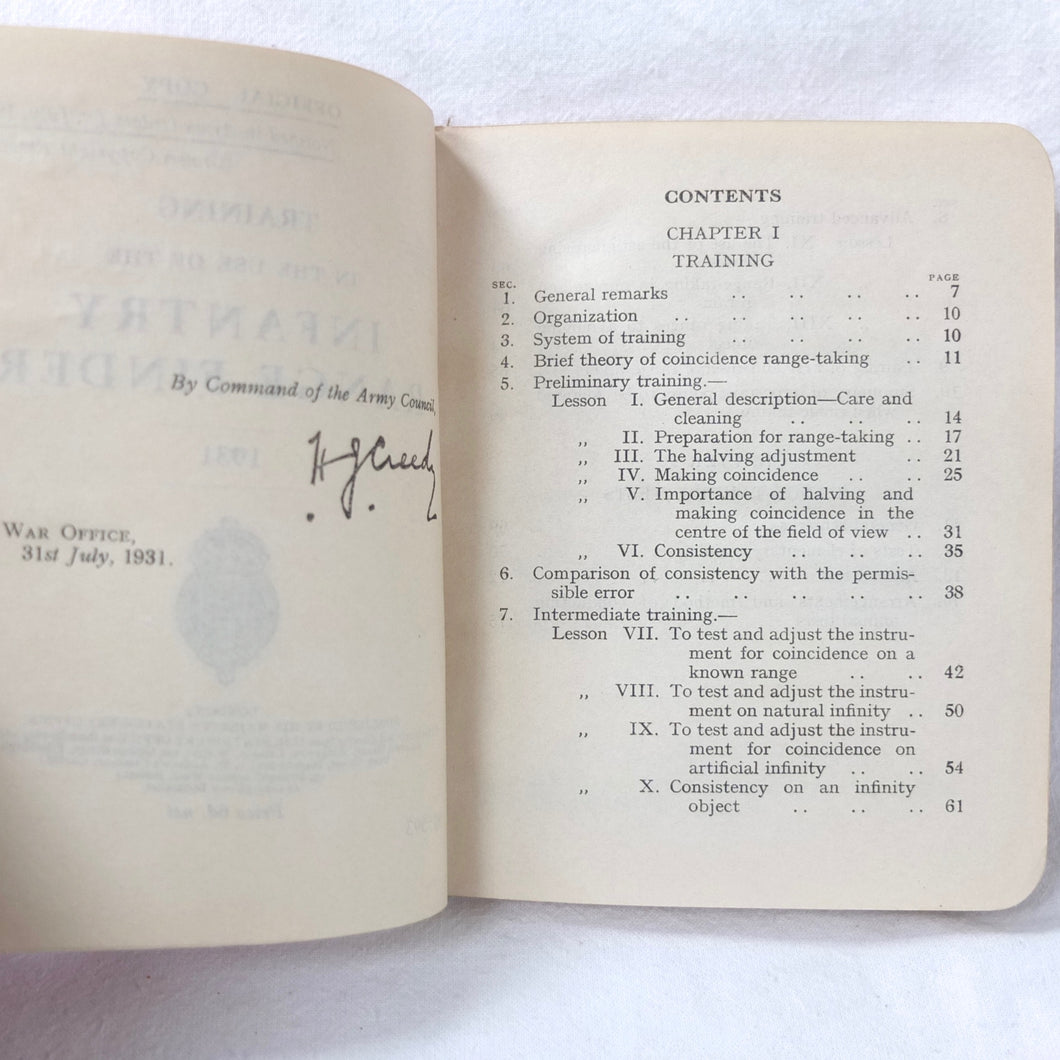 By Command of the Army Council,
H J Creedy
War Office,
31st July, 1931.
CONTENTS
CHAPTER I
TRAINING
SEC. PAGE
1. General remarks .. .. .. .. 7
2. Organization .. .. .. .. .. 10
3. System of training .. .. .. .. 10
4. Brief theory of coincidence range-taking .. 11
5. Preliminary training.—
Lesson I. General description—Care and
cleaning .. .. .. 14
,, II. Preparation for range-taking .. 17
,, III. The halving adjustment .. 21
,, IV. Making coincidence .. .. 25
,, V. Importance of halving and
making coincidence in the
centre of the field of view .. 31
,, VI. Consistency .. .. .. 35
6. Comparison of consistency with the permis-
sible error .. .. .. .. .. 38
7. Intermediate training.—
Lesson VII. To test and adjust the instru-
ment for coincidence on a
known range .. .. 42
,, VIII. To test and adjust the instru-
ment on natural infinity .. 50
,, IX. To test and adjust the instru-
ment for coincidence on
artificial infinity .. .. 54
,, X. Consistency on an infinity
object .. .. .. 61